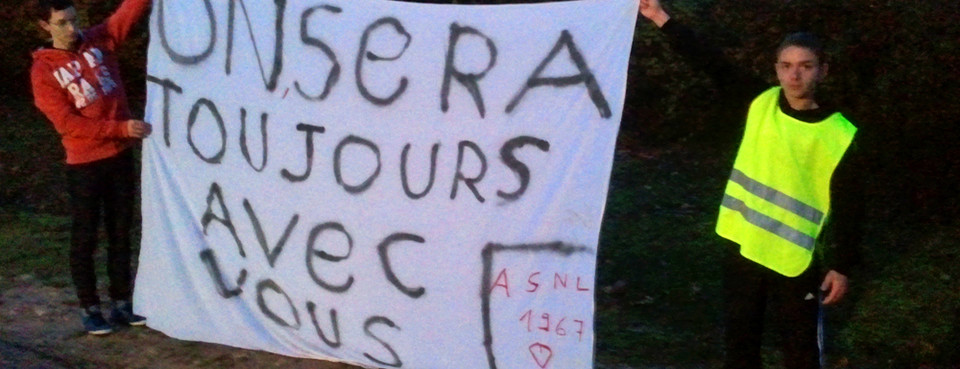 ON SERA
TOUJOURS
AVEC
VOUS
ASNL
1967